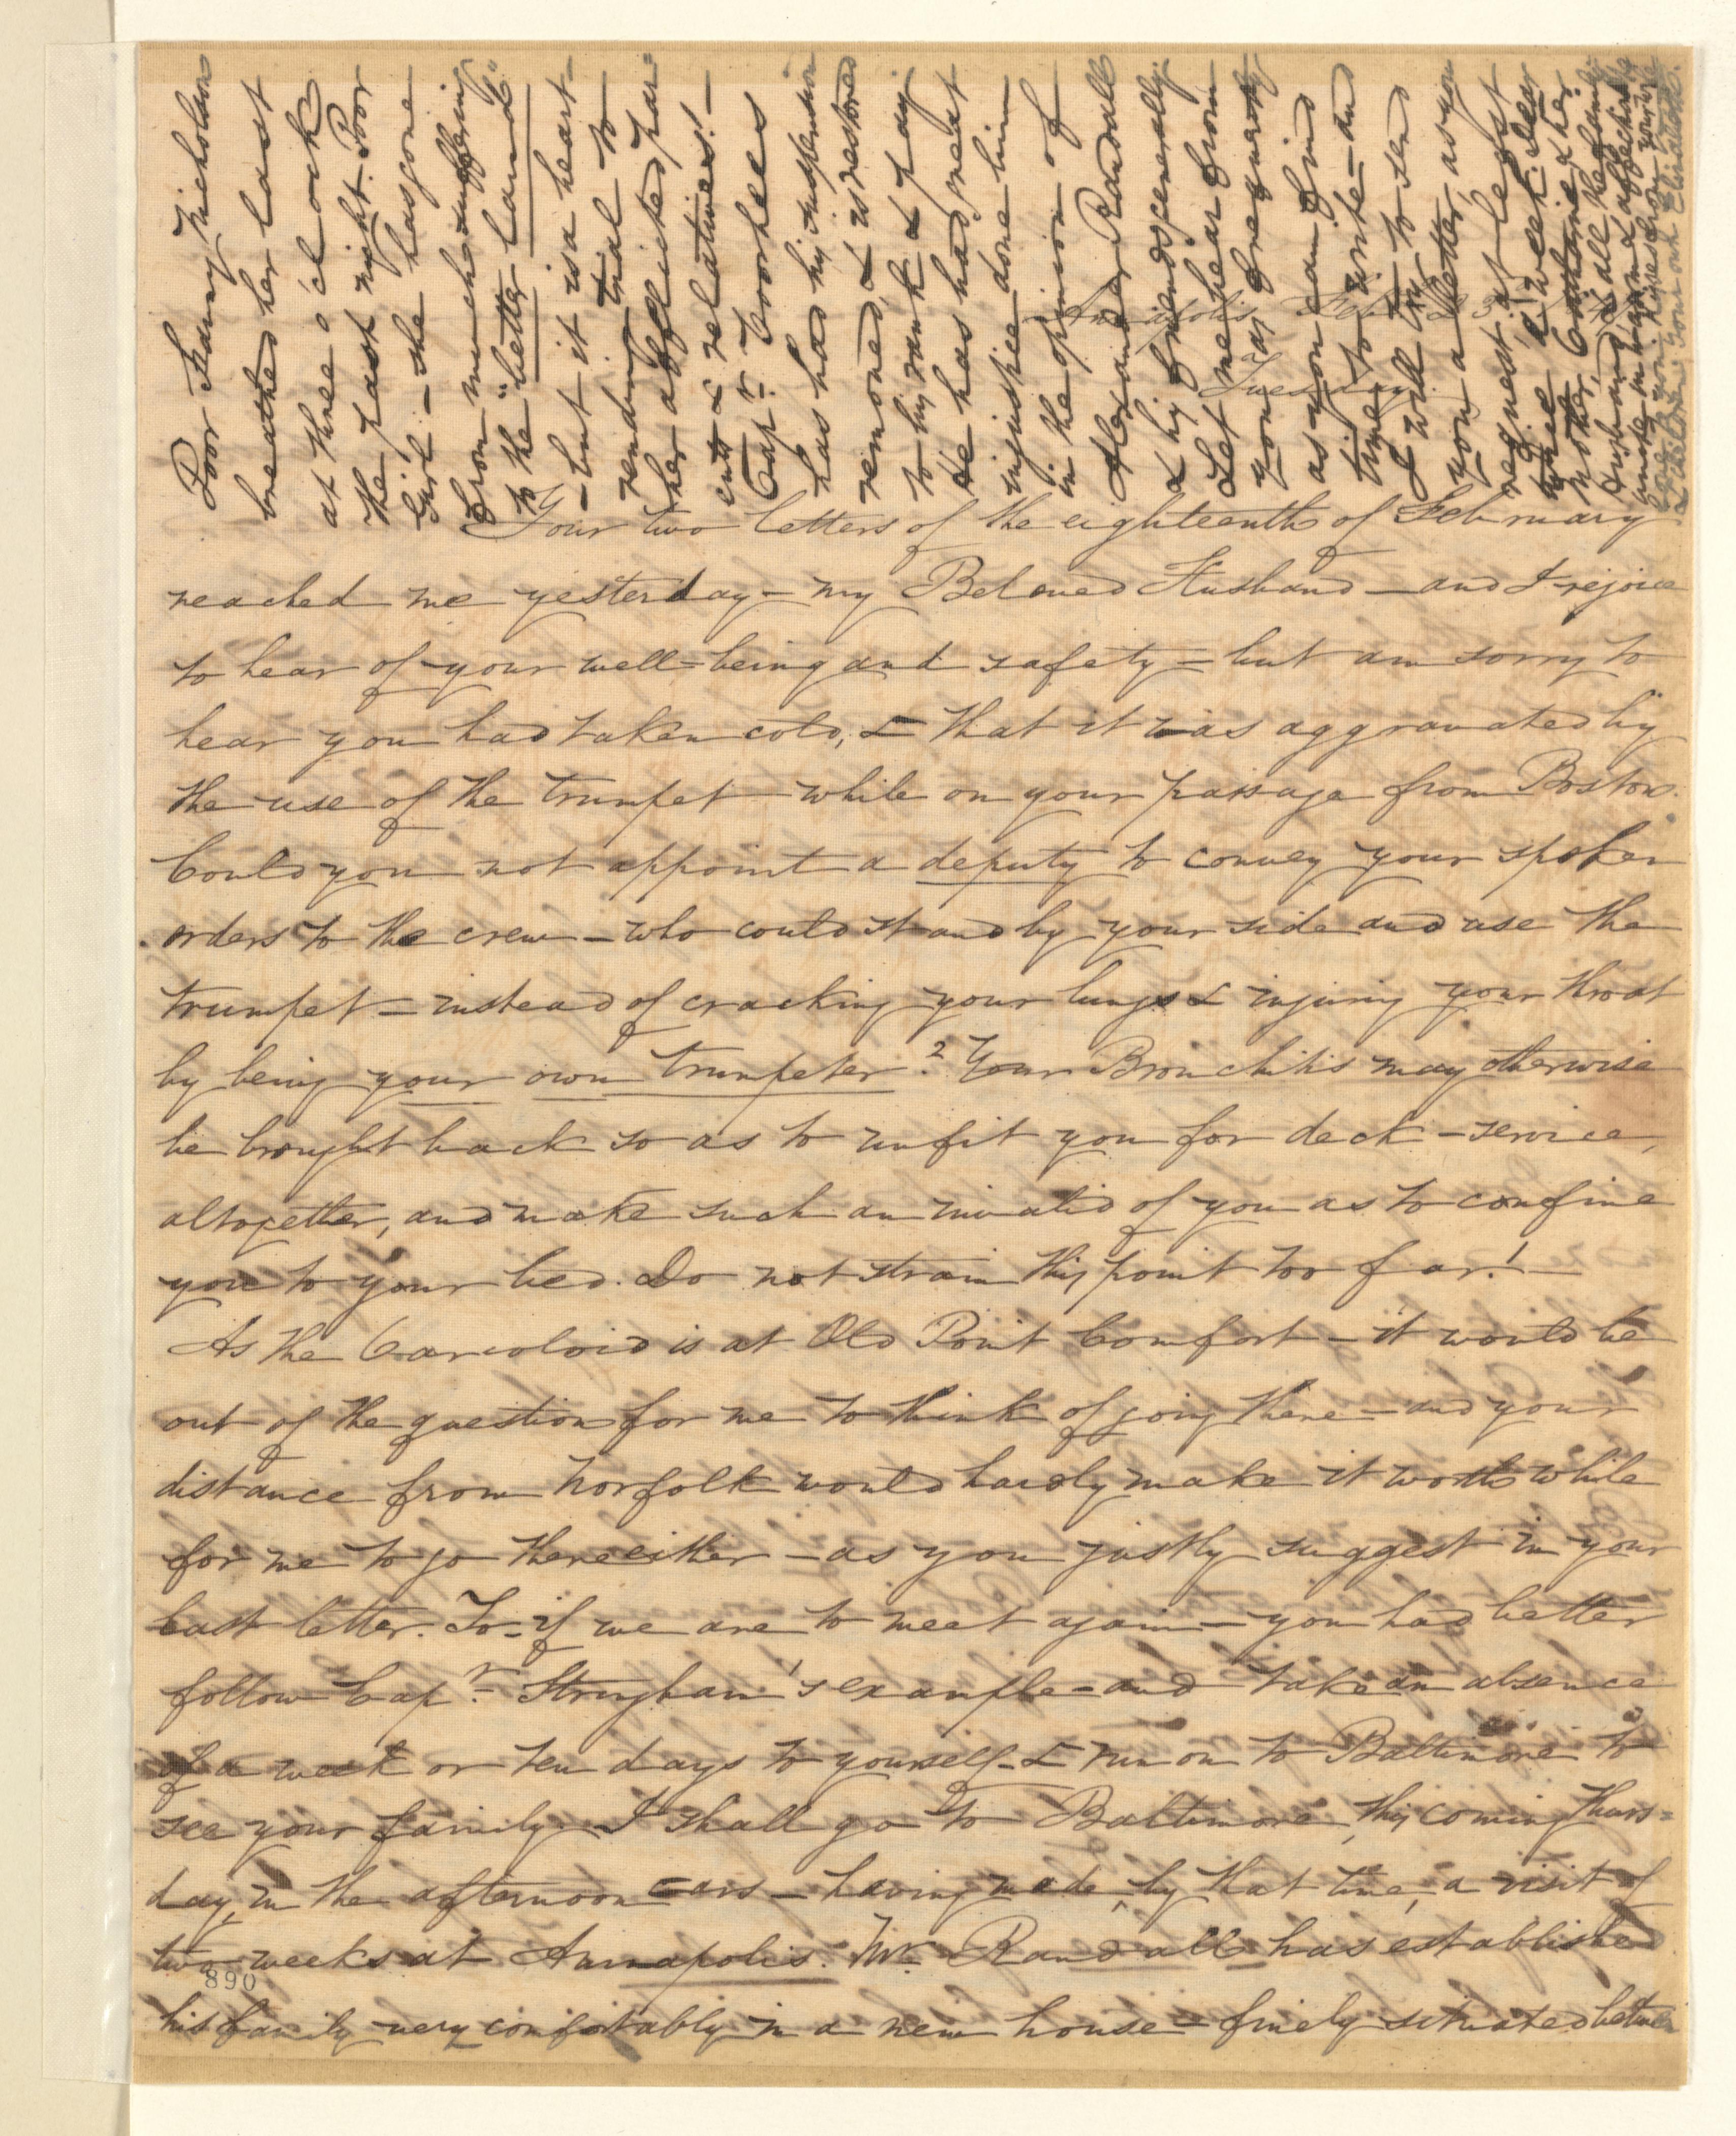 Annapolis, Feb. 23
Tuesday.
Your two letters of the eighteenth of February
reached me yesterday – my Beloved Husband – and I rejoice
to hear of your well=being and safety = but am sorry to
hear you had taken cold, & that it was aggravated by
the use of the trumpet – while on your passage from Boston.
Could you not appoint a deputy to convey your spoken
orders to the crew – who could stand by your side and use the
trumpet = instead of cracking your lungs & injuring your throat
by being your own trumpeter? Your Bronchitis may otherwise
be brought back so as to unfit you for deck-service,
altogether, and make such an invalid of you as to confine
you to your bed. Do not strain this point too far! –
As the Varioloid is at Old Point Comfort – it would be
out of the question for me to think of going there – and your
distance from Norfolk would hardly make it worth while
for me to go there either – as you justly suggest in your
last letter. So – if we are to meet again – you had better
follow Capt. Stringham's example – and take an absence
of a week or ten days to yourself – & run on to Baltimore to
see your family. I shall go to Baltimore, this coming Thurs=
day, in the afternoon cars – having made, by that time, a visit of
two weeks at Annapolis. Mr. Randall has established
his family very comfortably in a new house – finely situated between
890
Poor Fanny Nicholson
breathed her last
at three o'clock
the past night. Poor
Girl – she has gone
from much suffering
to the "better land"
– but it is a heart-
rending trial to
her afflicted par-
ents & relatives! –
Capt. Voorhees
has had his suspension
removed, & is restored
to his rank & pay
He has had great
injustice done him
in the opinion of
Alexander Randall
& his friends generally.
Let me hear from
you as frequently
as you can find
time to write – and
I will try to send
you a letter, as you
request, at least
twice a week. Dear
Mother, Catharine & her
Husband, & all the family
unite in warm & affectionate
love to you.